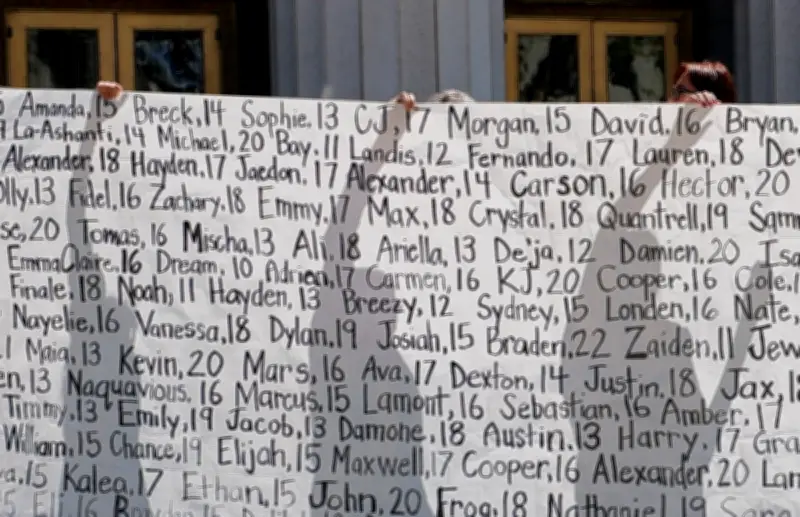 Amanda, 15 Breck, 14 Sophie, 13 CJ, 17 Morgan, 15 David, 16 Bryan,
La-Ashanti, 14 Michael, 20 Bay, 11 Landis, 12 Fernando, 17 Lauren, 18 De
Alexander, 18 Hayden, 17 Jaedon, 17 Alexander, 14 Carson, 16 Hector, 20
olly, 13 Fidel, 16 Zachary, 18 Emmy, 17 Max, 18 Crystal, 18 Quantrell, 19 Sam
se, 20 Tomas, 16 Mischa, 13 Ali, 18 Ariella, 13 De'ja, 12 Damien, 20 Isa
EmmaClaire, 16 Dream, 10 Adrien, 17 Carmen, 16 KJ, 20 Cooper, 16 Cole,
Finale, 18 Noah, 11 Hayden, 13 Breezy, 12 Sydney, 15 Londen, 16 Nate,
Nayelie, 16 Vanessa, 18 Dylan, 19 Josiah, 15 Braden, 22 Zaiden, 11 Jew
Maia, 13 Kevin, 20 Mars, 16 Ava, 17 Dexton, 14 Justin, 18 Jax,
en, 13 Naquavious, 16 Marcus, 15 Lamont, 16 Sebastian, 16 Amber, 17
Timmy, 13 Emily, 19 Jacob, 13 Damone, 18 Austin, 13 Harry, 17 Gra
William, 15 Chance, 19 Elijah, 15 Maxwell, 17 Cooper, 16 Alexander, 20 Lan
a, 15 Kalea, 17 Ethan, 15 John, 20 Frog, 18 Nathaniel, 19 Sara
Eli, 16